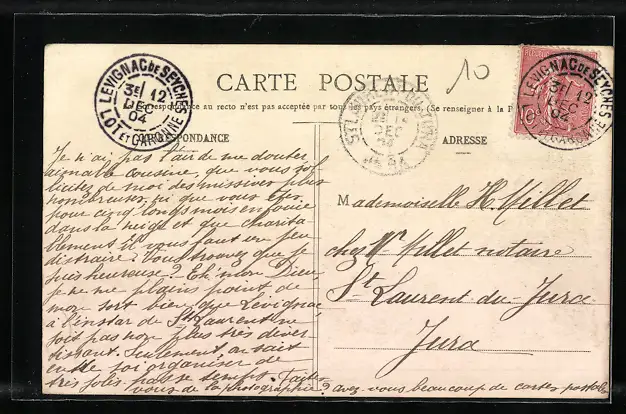 CARTE POSTALE
10
La Correspondance au recto n'est pas acceptée par tous les pays étrangers. (Se renseigner à la P
CORRESPONDANCE
ADRESSE
LEVIGNAC DE SEYCHES
3E 12
DEC
04
LOT ET GARONNE
LEVIGNAC DE SEYCHES
3E 12
DEC
04
GARONNE
ST LAURENT
DEC
JURA
10
Je n'ai pas l'air de me douter
aimable cousine, que vous sol
licitez de moi des missives plus
nombreuses, ni que vous êtes
pour cinq longs mois
dans la neige et que charita
blement il vous faut un peu
distraire. Vous trouvez que je
suis heureuse? Eh! mon Dieu,
je ne me plains point de
mon sort bien que Levignac
à l'instar de St Laurent ne
soit pas non plus très diver
tissant. Seulement on sait
en de soi organiser de
très jolies
vous de la photographie? avez-vous beaucoup de cartes postales
Mademoiselle H. Millet
chez Mr Millet notaire
St Laurent-du-Jura
Jura